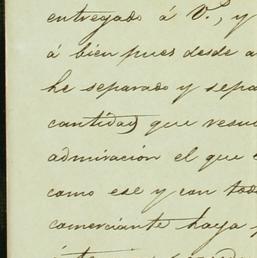 entregado á V., y
á bien pues desde a
he separado y sepa
cantidad que resu
admiración el que
como ese y con tod
comerciante haya